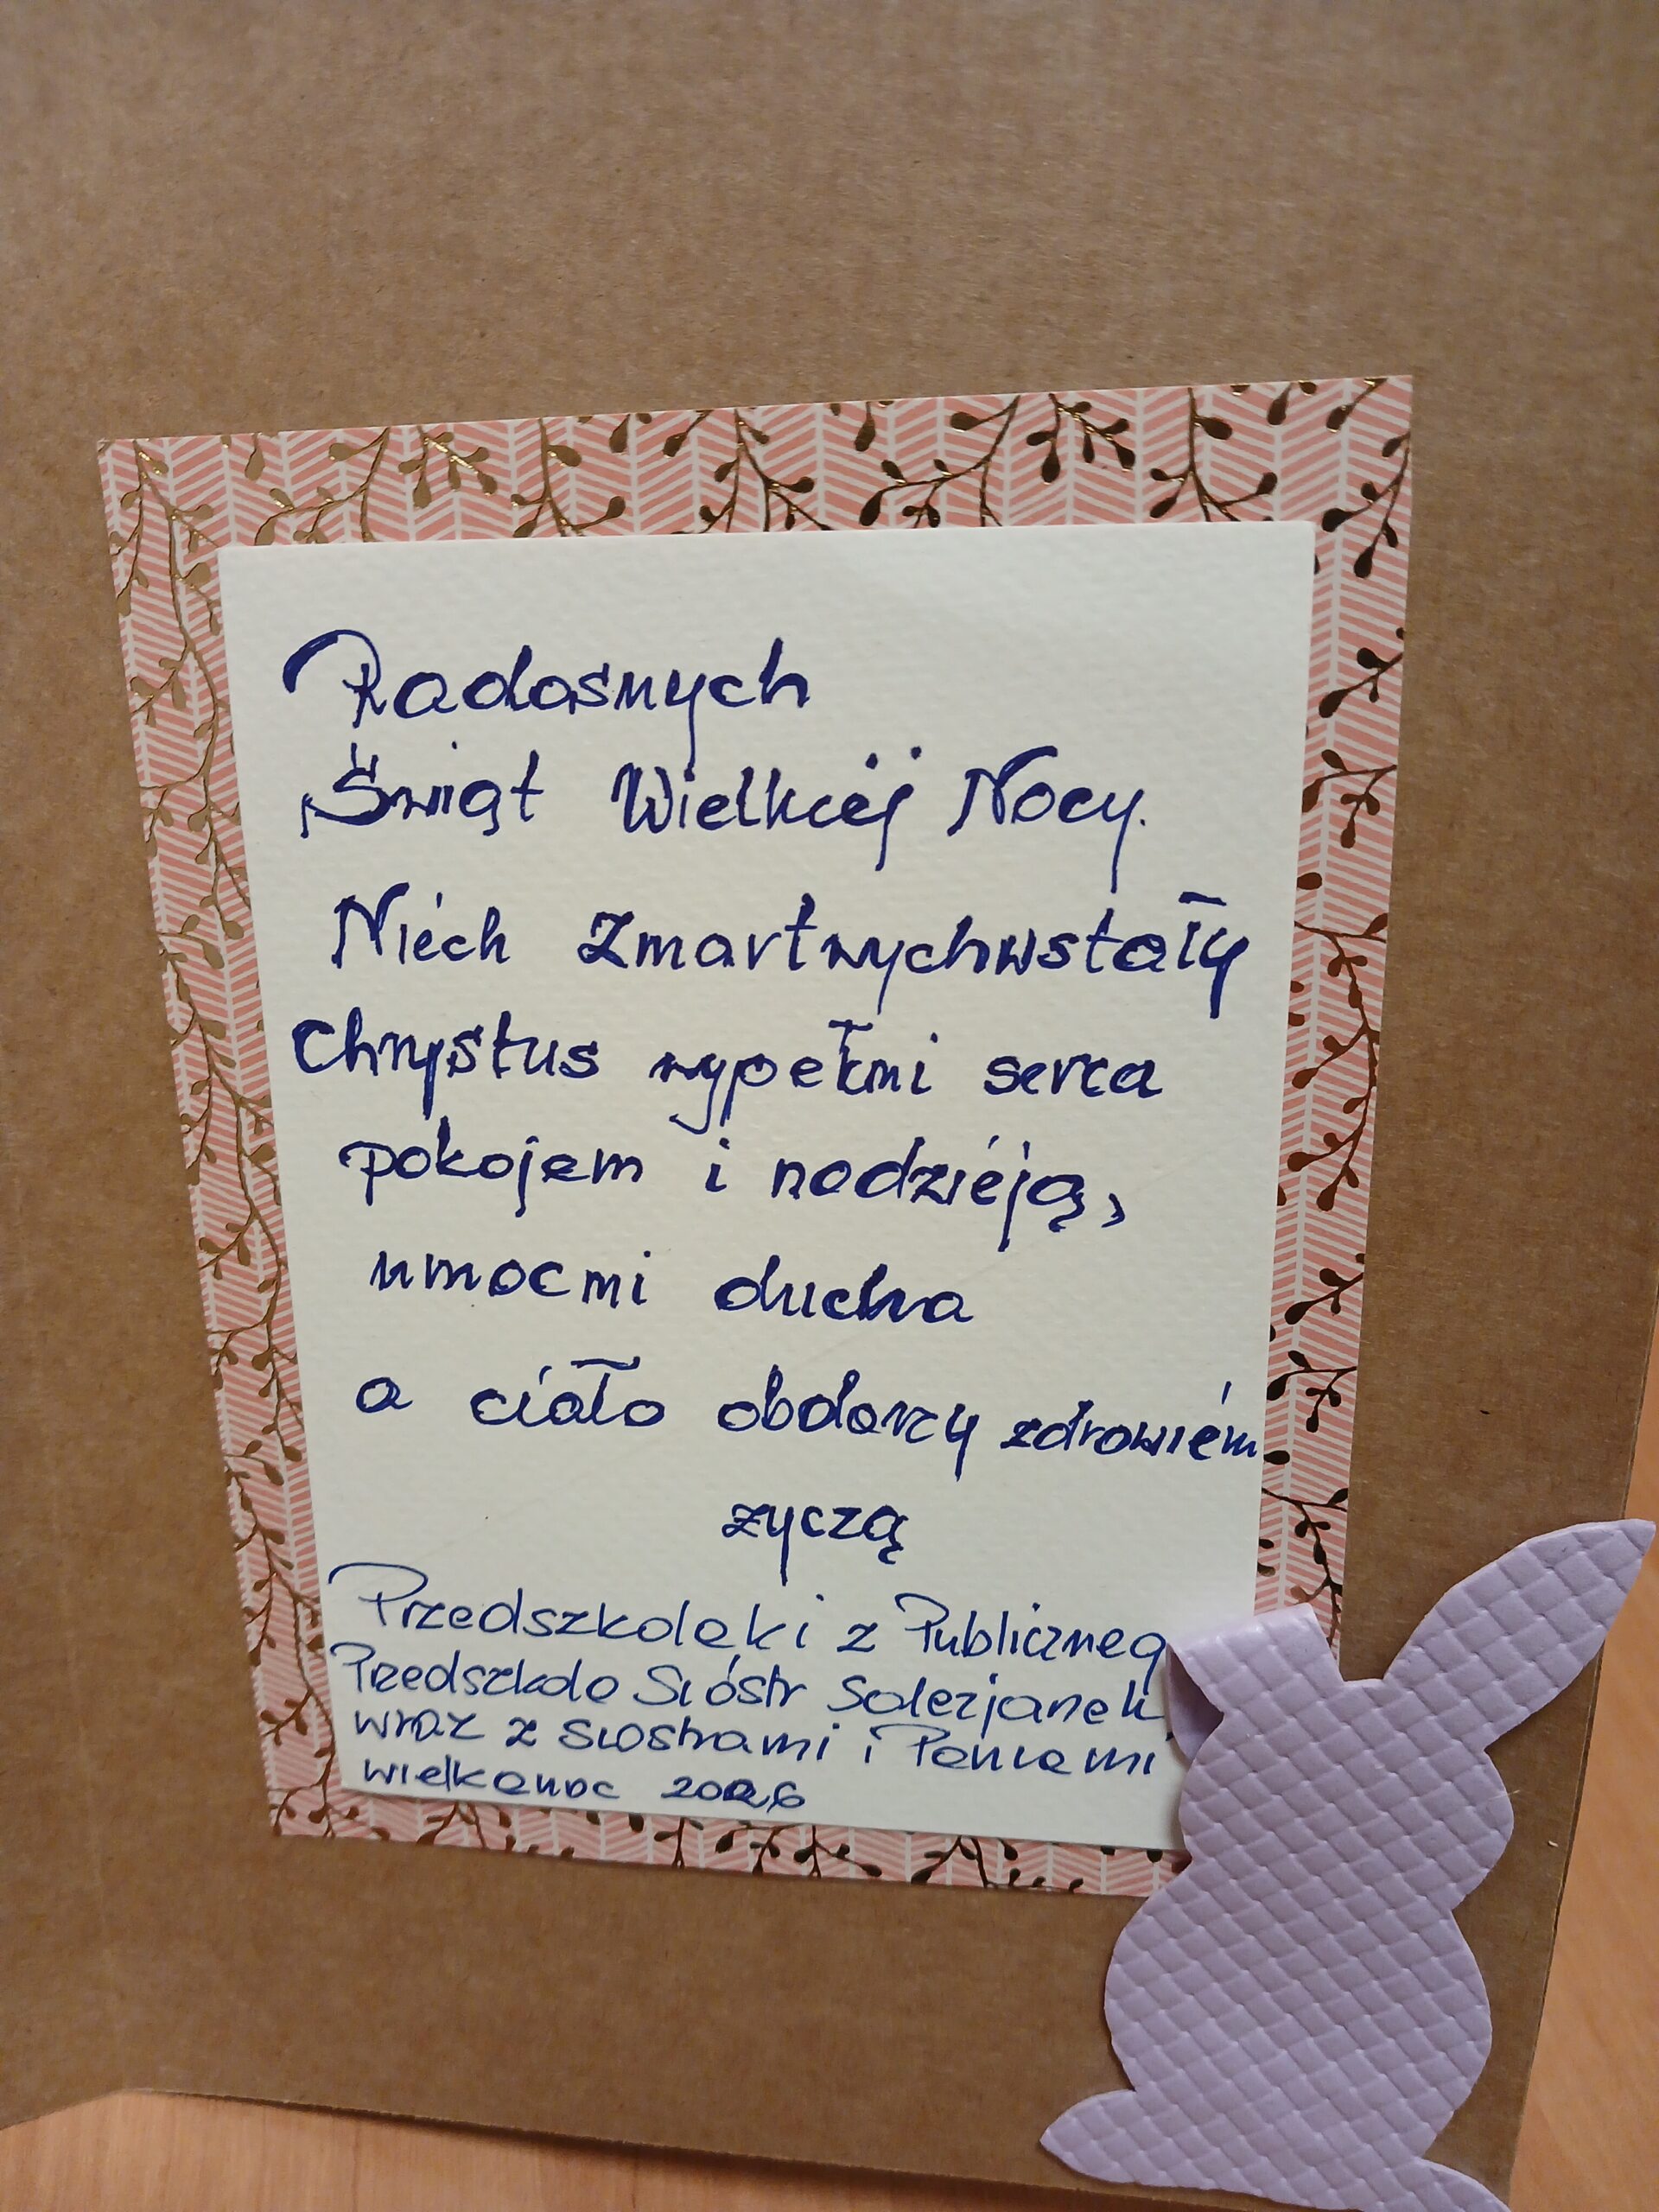 Radosnych
Świąt Wielkiej Nocy.
Niech Zmartwychwstały
Chrystus wypełni serca
pokojem i nadzieją,
umocni ducha
a ciało obdarzy zdrowiem
życzą
Przedszkolaki z Publiczneg
Przedszkola Sióstr Salezjanek
wraz z siostrami i Paniami
wielkanoc 2026